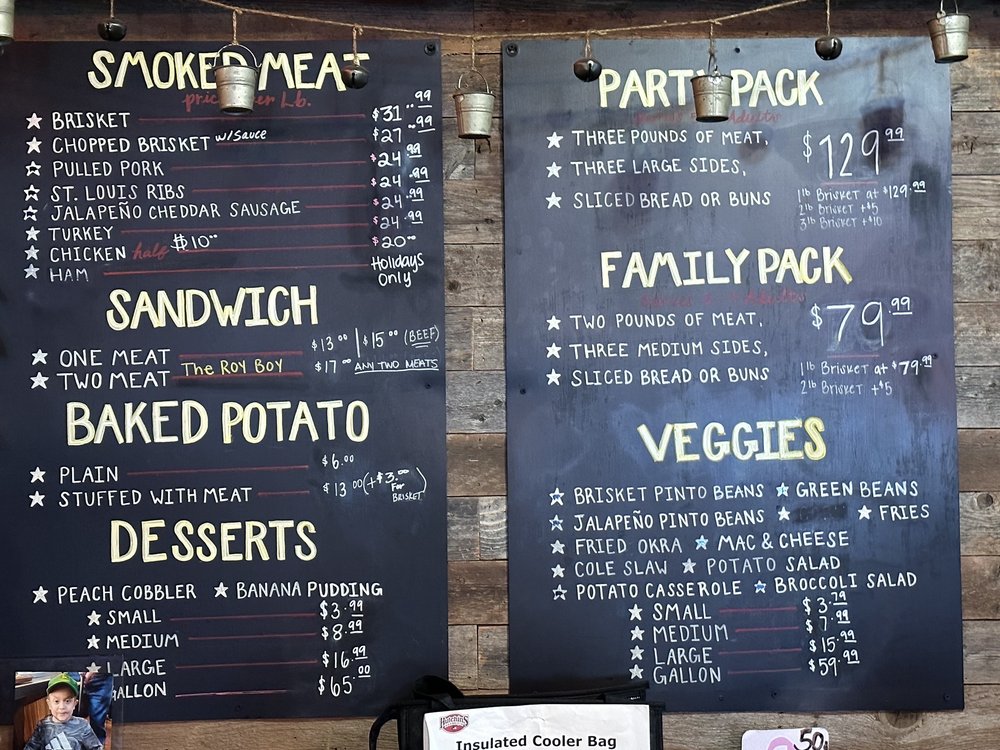 SMOKED MEAT
price per Lb.
★ BRISKET $31.99
★ CHOPPED BRISKET w/sauce $27.99
☆ PULLED PORK $24.99
☆ ST. LOUIS RIBS $24.99
☆ JALAPEÑO CHEDDAR SAUSAGE $24.99
★ TURKEY $24.99
★ CHICKEN half $10.00 $20.00
★ HAM Holidays Only
SANDWICH
★ ONE MEAT $13.00 | $15.00 (BEEF)
★ TWO MEAT The Roy Boy $17.00 ANY TWO MEATS
BAKED POTATO
★ PLAIN $6.00
★ STUFFED WITH MEAT $13.00 (+$3.00 For BRISKET)
DESSERTS
★ PEACH COBBLER ★ BANANA PUDDING
★ SMALL $3.99
★ MEDIUM $8.99
★ LARGE $16.99
GALLON $65.00
PARTY PACK
Adults
★ THREE POUNDS OF MEAT, $129.99
★ THREE LARGE SIDES,
★ SLICED BREAD OR BUNS
1lb Brisket at $129.99
2lb Brisket +$5
3lb Brisket +$10
FAMILY PACK
Adults
★ TWO POUNDS OF MEAT, $79.99
★ THREE MEDIUM SIDES,
★ SLICED BREAD OR BUNS
1lb Brisket at $79.99
2lb Brisket +$5
VEGGIES
☆ BRISKET PINTO BEANS ★ GREEN BEANS
☆ JALAPEÑO PINTO BEANS ★ ★ FRIES
★ FRIED OKRA ★ MAC & CHEESE
★ COLE SLAW ★ POTATO SALAD
☆ POTATO CASSEROLE ★ BROCCOLI SALAD
★ SMALL $3.79
★ MEDIUM $7.99
★ LARGE $15.99
★ GALLON $59.99
HUTCHINS
Insulated Cooler Bag
50